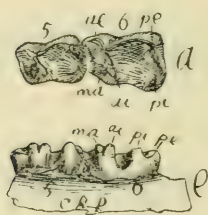 5 ae 6 pe
d
md
pi
ma ae pi pe
e
5 6
C R P